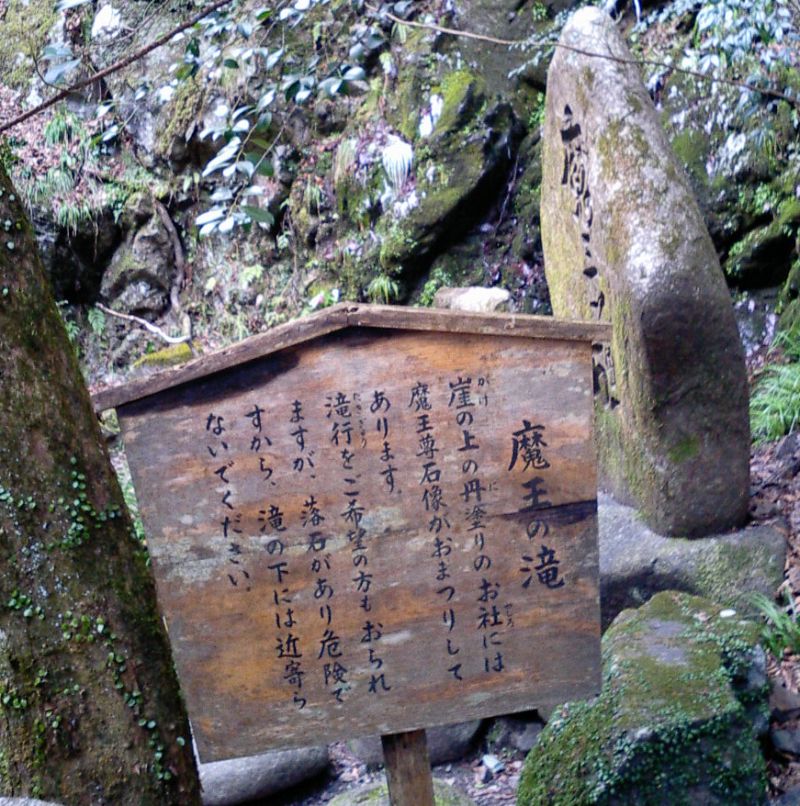 魔王の滝
崖の上の丹塗りのお社には
魔王尊石像がおまつりして
あります。
滝行をご希望の方もおられ
ますが、落石があり危険で
すから、滝の下には近寄ら
ないでください。